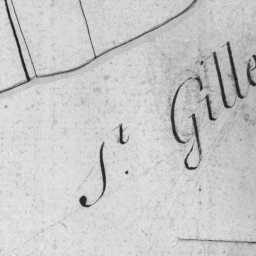 St. Gille